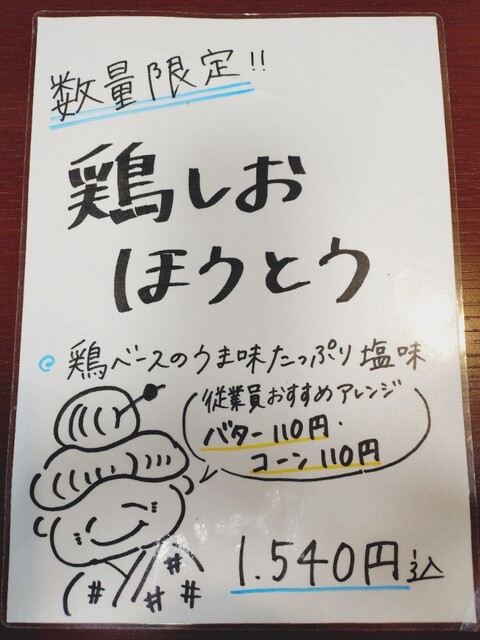 数量限定!!
鶏しお
ほうとう
鶏ベースのうま味たっぷり塩味
従業員おすすめアレンジ
バター110円・
コーン110円
1.540円込